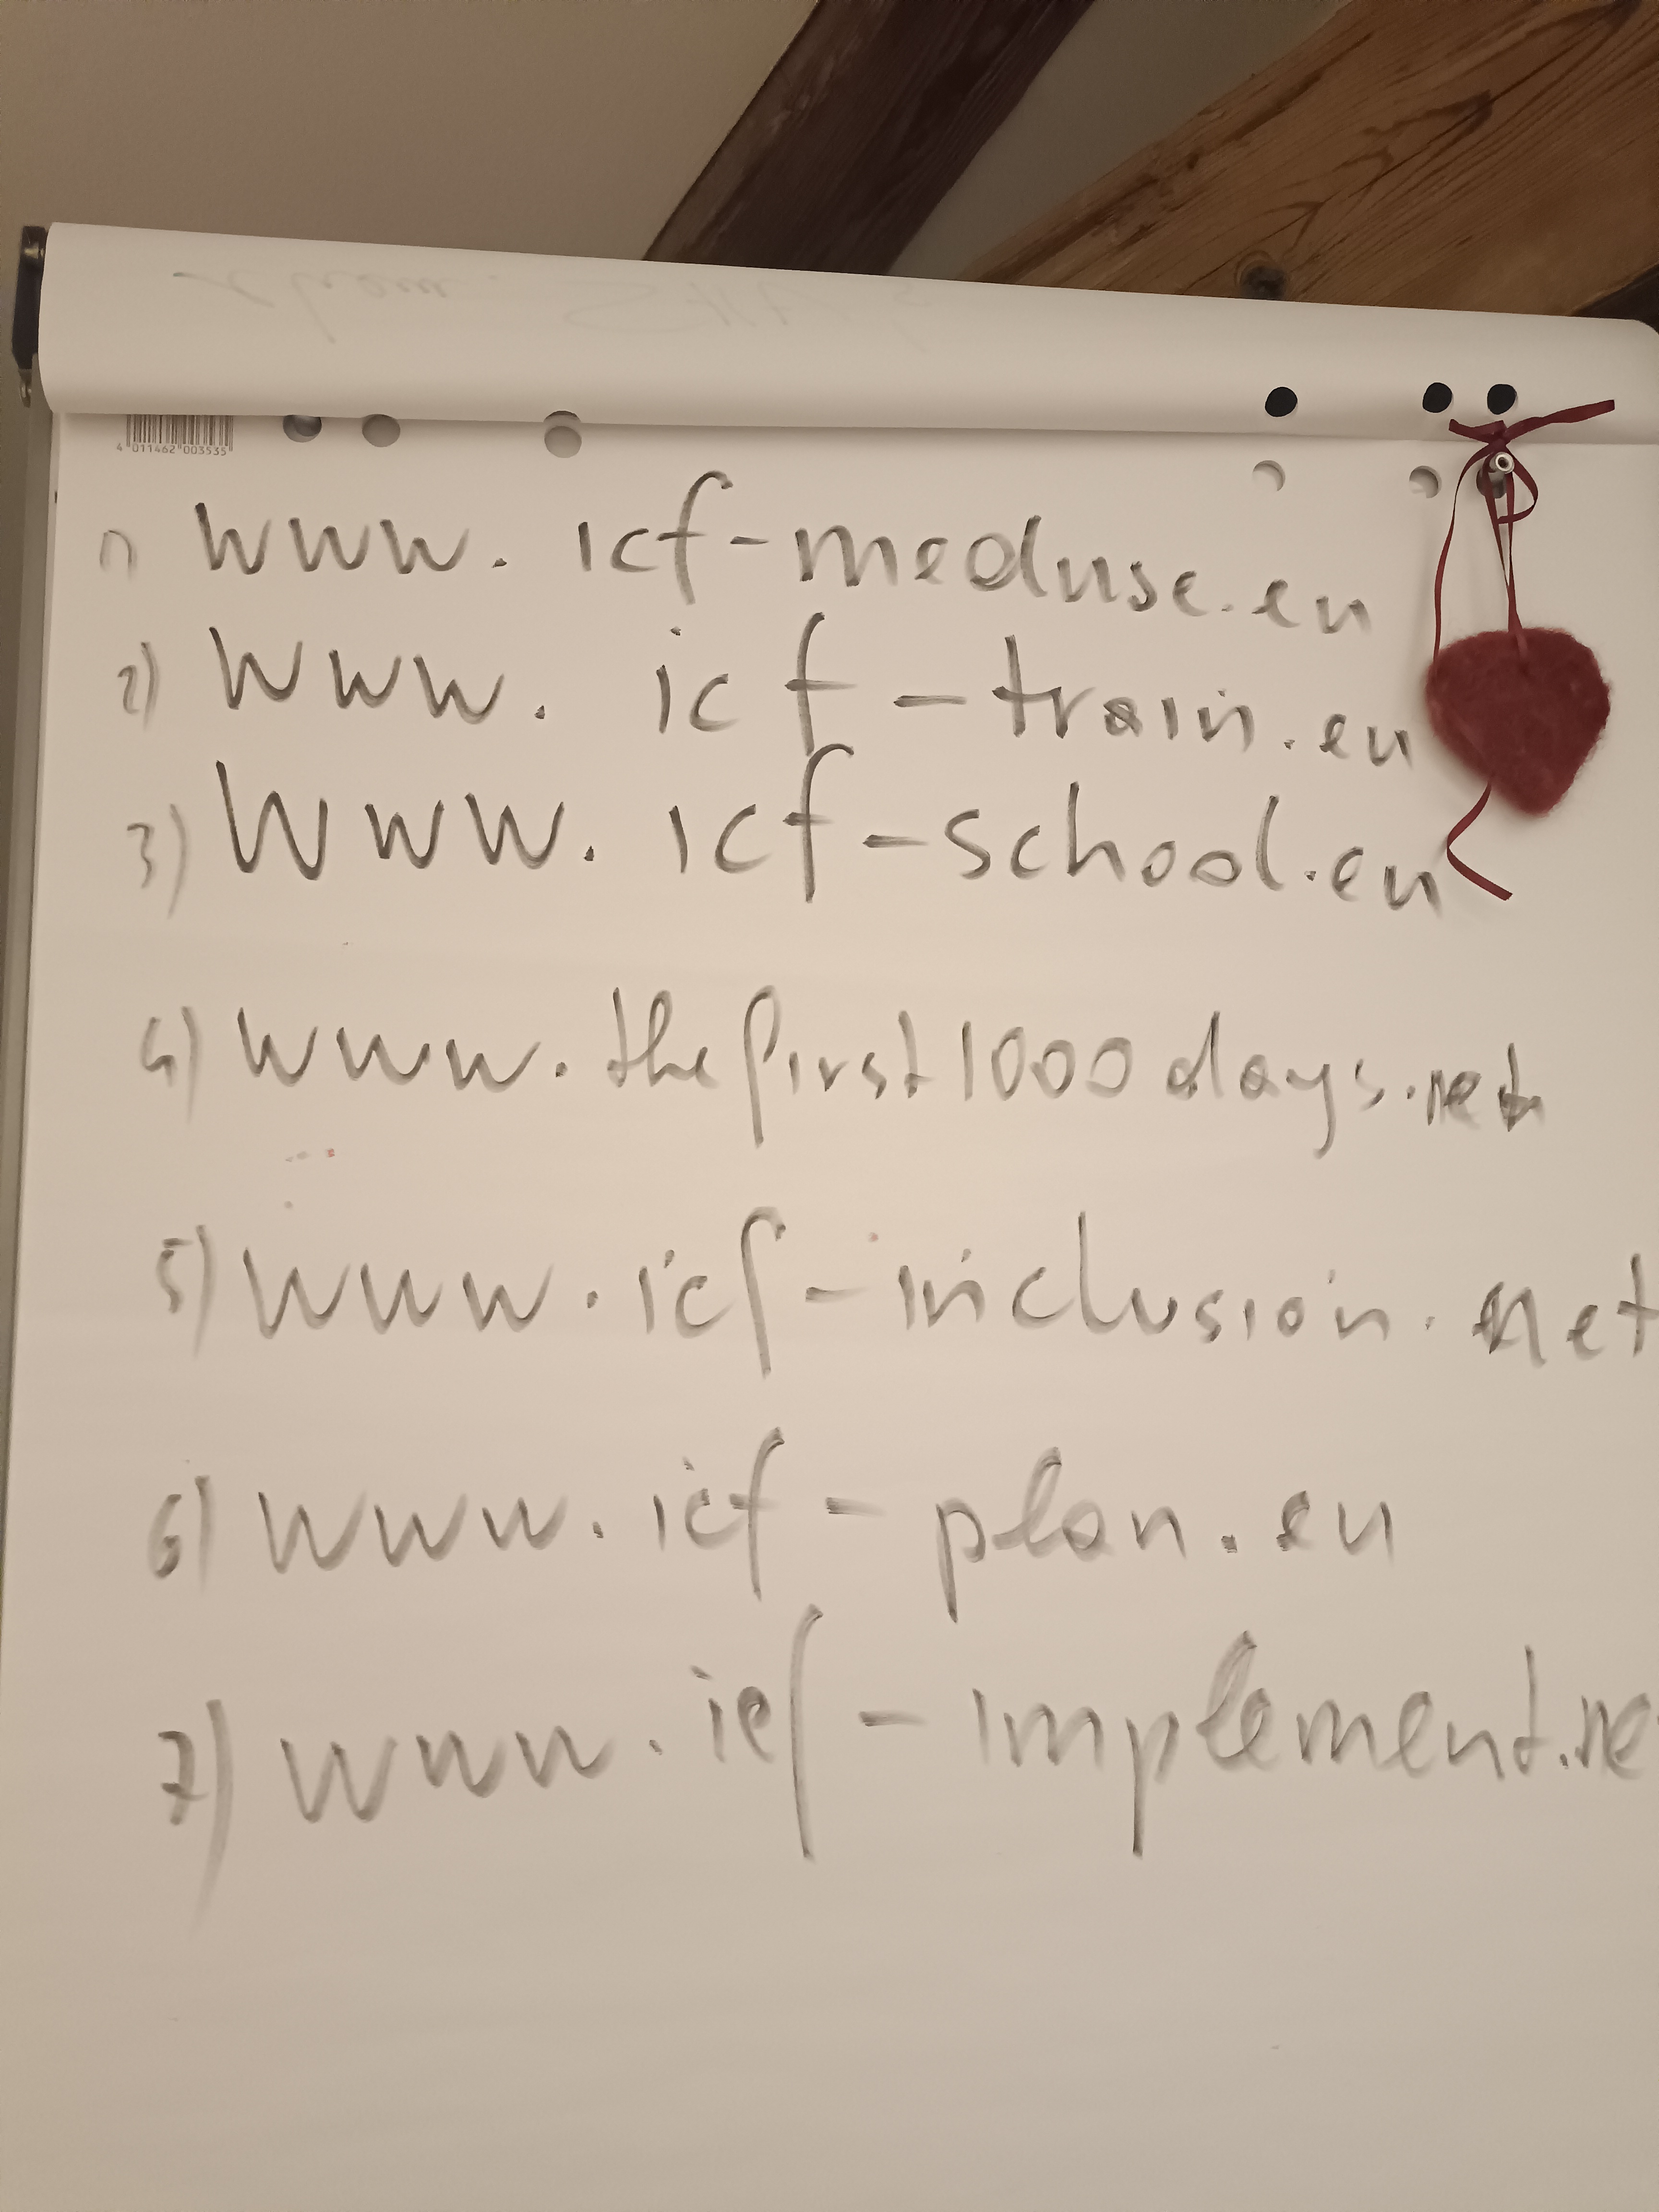 4 011462 003535
1) www.icf-meduse.eu
2) www. icf-train.eu
3) www. icf-school.eu
4) www.thefirst1000days.net
5) www.icf-inclusion.net
6) www.icf-plan.eu
7) www.icf-implement.ne